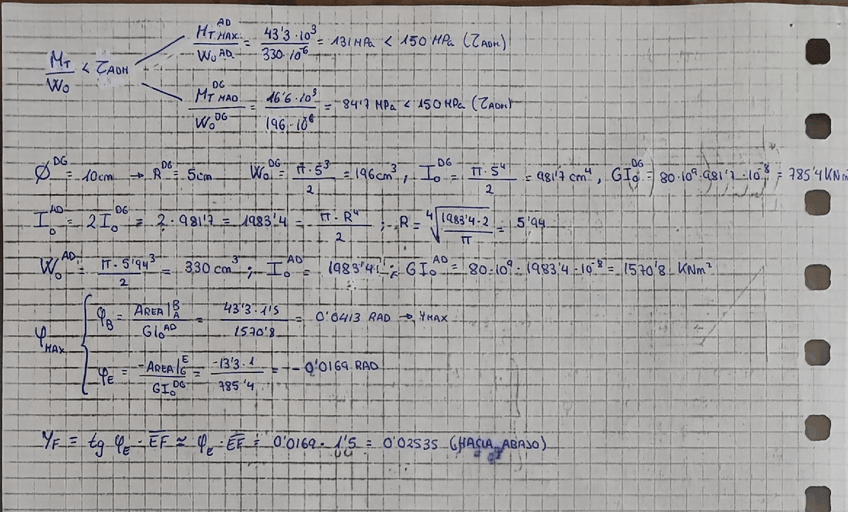 M_T / W_0 < τ_ADM
M_T MAX^AD / W_0^AD = 43'3·10³ / 330·10⁻⁶ = 131 MPa < 150 MPa (τ_ADM)
M_T MAD^DG / W_0^DG = 16'6·10³ / 196·10⁻⁶ = 84'7 MPa < 150 MPa (τ_ADM)
Ø^DG = 10cm → R^DG = 5cm W_0^DG = π·5³ / 2 = 196 cm³, I_0^DG = π·5⁴ / 2 = 981'7 cm⁴, GI_0^DG = 80·10⁹·981'7·10⁻⁸ = 785'4 KNm
I_0^AD = 2I_0^DG = 2·981'7 = 1983'4 = π·R⁴ / 2 ; R = ⁴√(1983'4·2 / π) = 5'94
W_0^AD = π·5'94³ / 2 = 330 cm³ ; I_0^AD = 1983'4 ; GI_0^AD = 80·10⁹·1983'4·10⁻⁸ = 1570'8 KNm²
φ_MAX
φ_B = AREA|_A^B / GI_0^AD = 43'3·1'5 / 1570'8 = 0'0413 RAD → φ_MAX
φ_E = -AREA|_G^E / GI_0^DG = -13'3·1 / 785'4 = -0'0169 RAD
Y_F = tg φ_E · EF ≃ φ_E · EF = 0'0169 · 1'5 = 0'02535 (HACIA ABAJO)